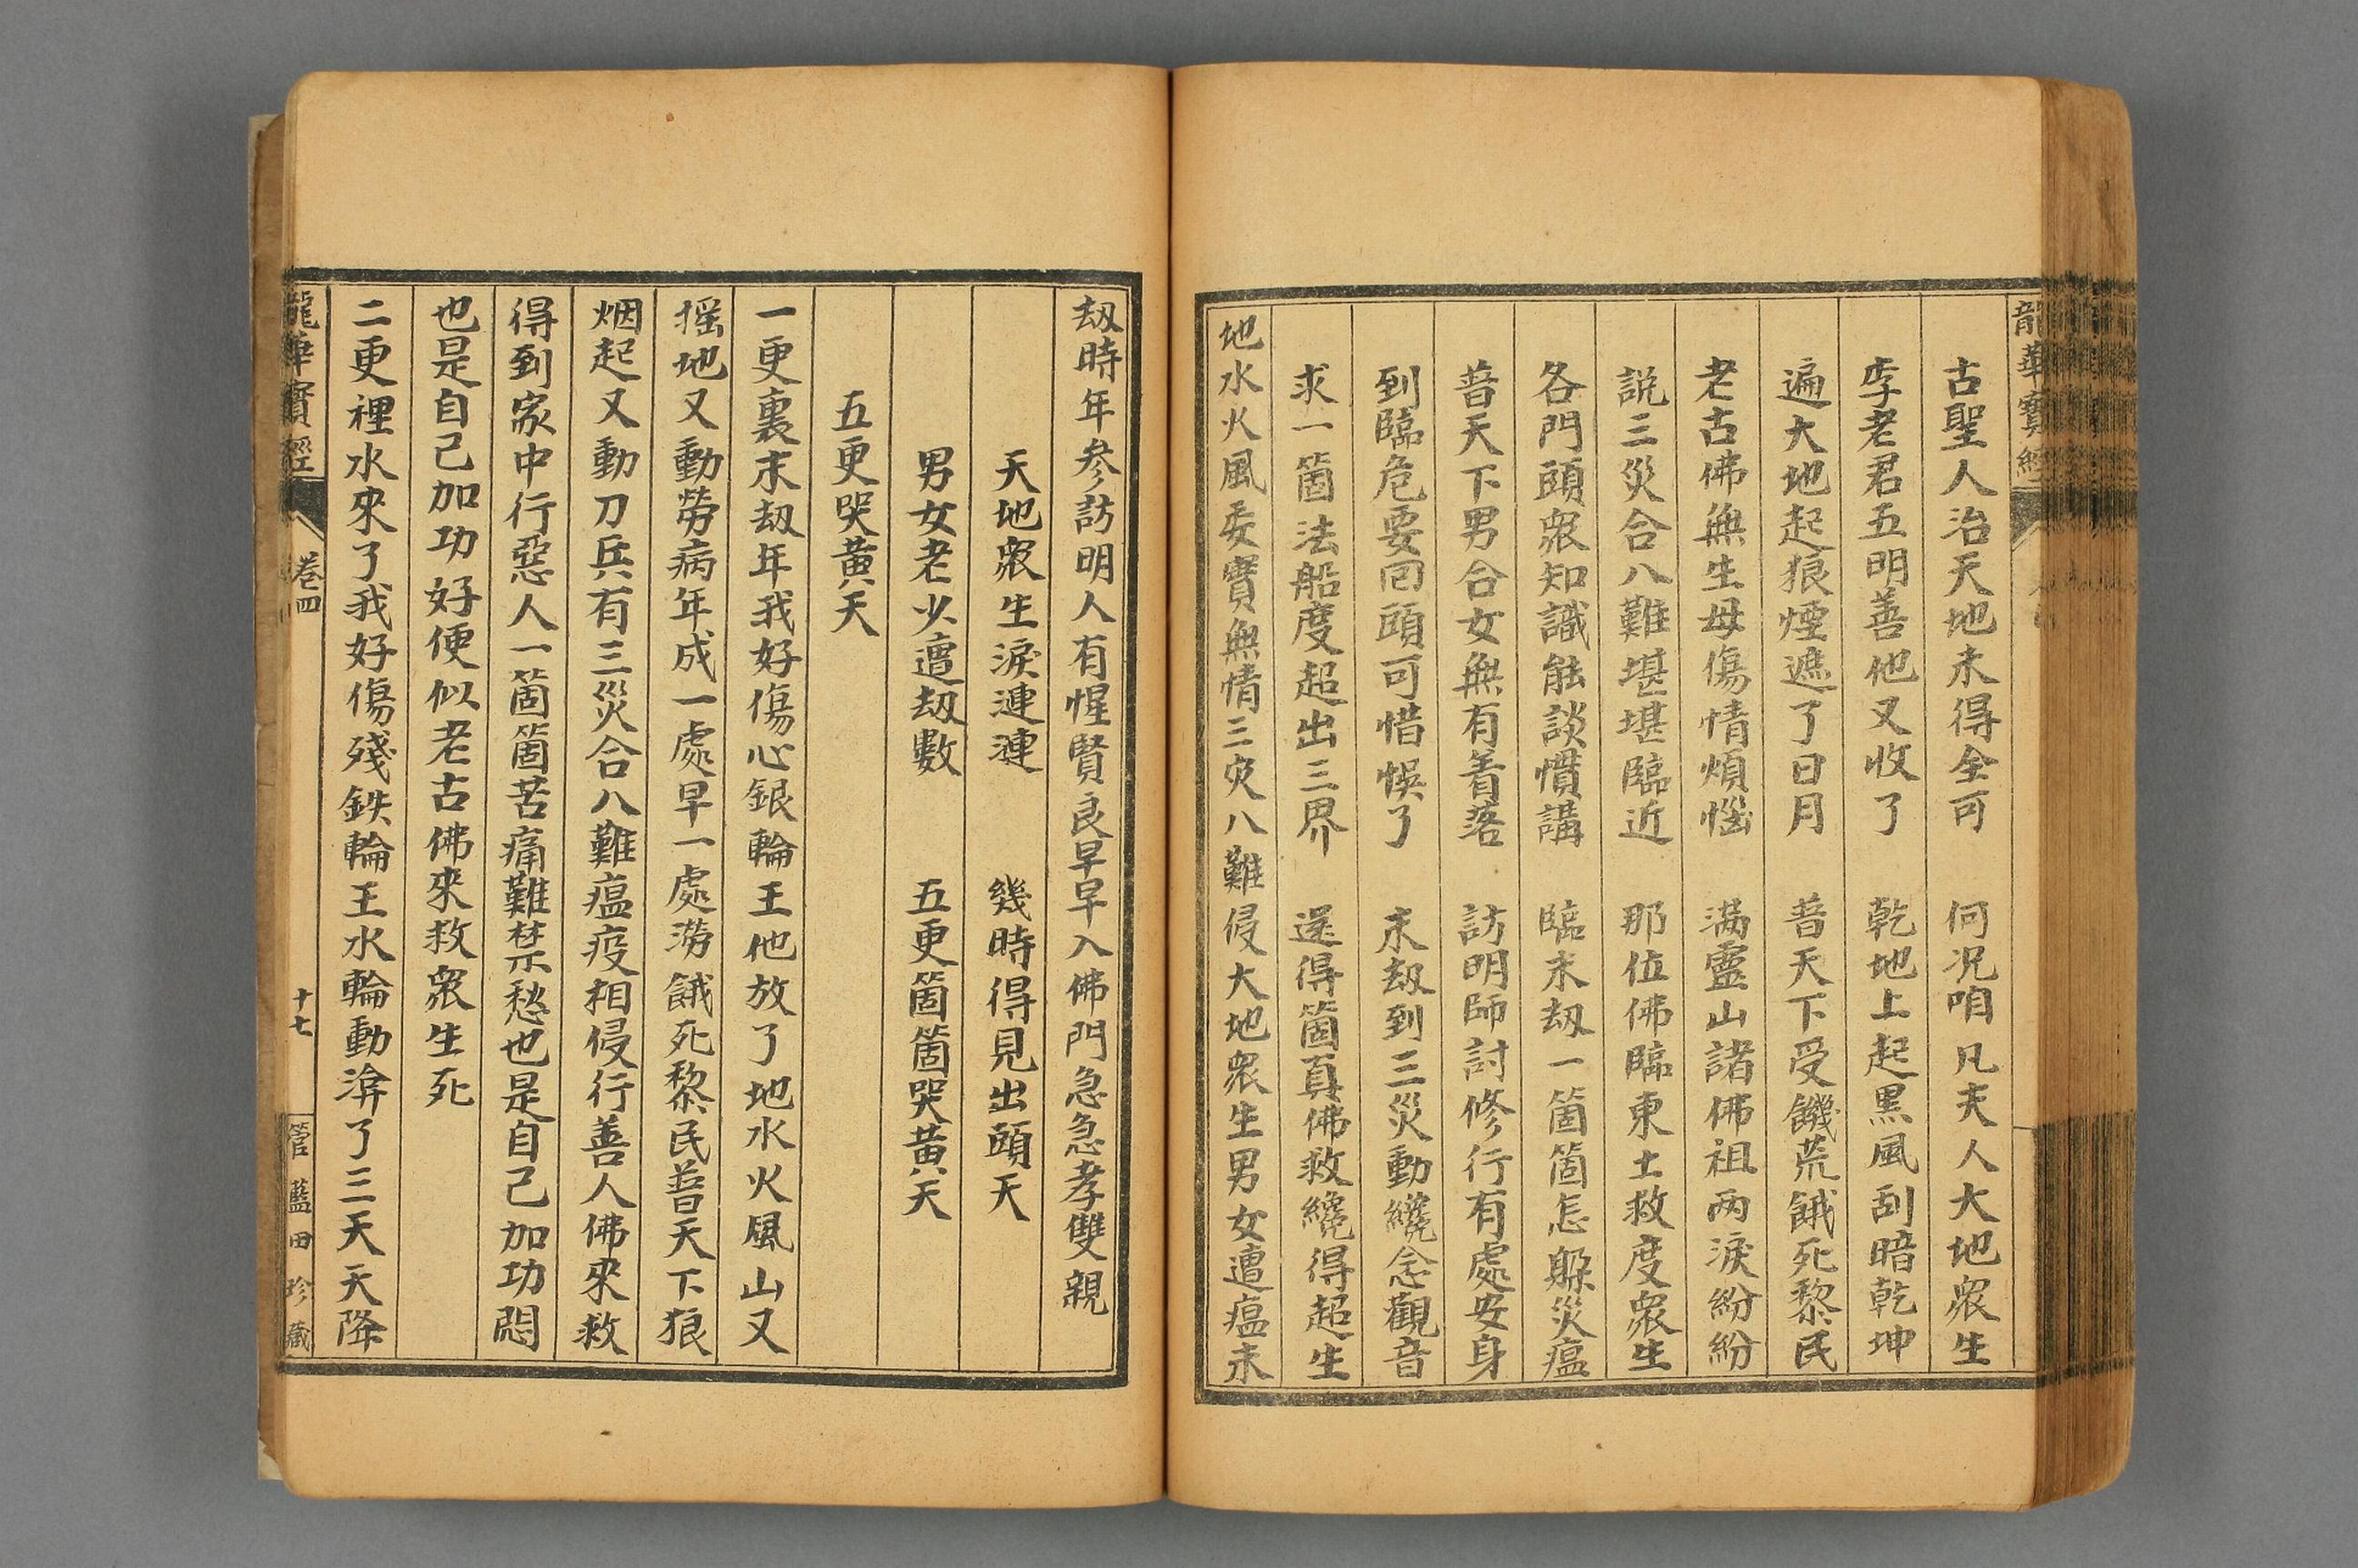 龍華寶經
古聖人治天地未得全可　何况咱凡夫人大地衆生
李老君五明善他又收了　乾地上起黑風刮暗乾坤
遍大地起狼煙遮了日月　普天下受饑荒餓死黎民
老古佛無生母傷情煩惱　满靈山諸佛祖两淚紛紛
説三災合八難堪堪臨近　那位佛臨東土救度衆生
各門頭衆知識能談慣講　臨末刼一箇箇怎躲災瘟
普天下男合女無有着落　訪明師討修行有處安身
到臨危要回頭可惜悮了　末刼到三災動纔念觀音
求一箇法船度超出三界　還得箇真佛救纔得超生
地水火風委實無情三灾八難侵大地衆生男女遭瘟末
刼時年参訪明人有惺賢良早早入佛門急急孝雙親
天地衆生淚漣漣　幾時得見出頭天
男女老少遭刼數　五更箇箇哭黄天
五更哭黄天
一更裏末刼年我好傷心銀輪王他放了地水火風山又
摇地又動勞病年成一處旱一處澇餓死黎民普天下狼
烟起又動刀兵有三災合八難瘟疫相侵行善人佛來救
得到家中行惡人一箇箇苦痛難禁愁也是自己加功悶
也是自己加功好便似老古佛來救衆生死
二更裡水來了我好傷殘鉄輪王水輪動渰了三天天降
龍華寶經
卷四
十七
管藍田珍藏